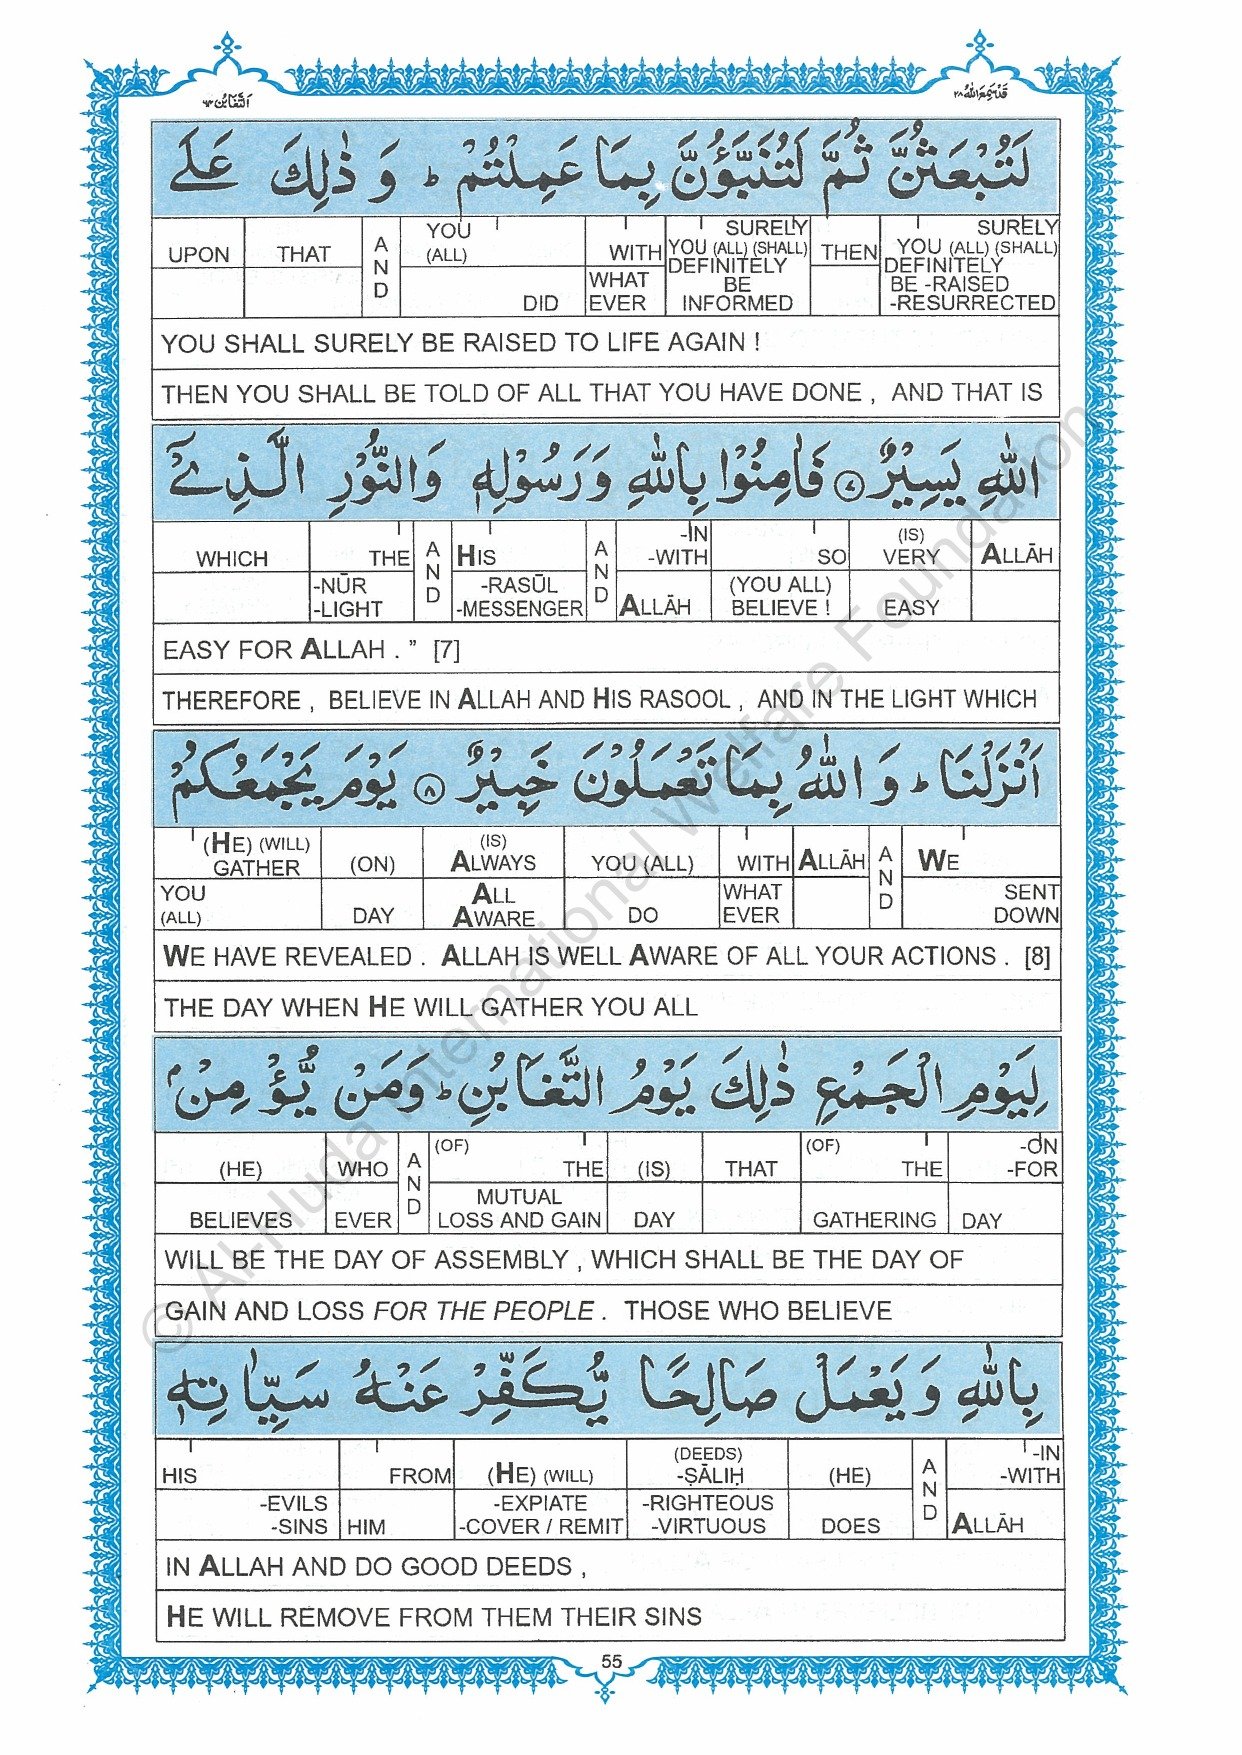 التغابن ٦٤
قد سمع الله ٢٨
لَتُبْعَثُنَّ ثُمَّ لَتُنَبَّؤُنَّ بِمَا عَمِلْتُمْ ؕ وَ ذٰلِكَ عَلَى
UPON THAT AND YOU (ALL) DID WITH WHAT EVER SURELY YOU (ALL) (SHALL) DEFINITELY BE INFORMED THEN SURELY YOU (ALL) (SHALL) DEFINITELY BE -RAISED -RESURRECTED
YOU SHALL SURELY BE RAISED TO LIFE AGAIN !
THEN YOU SHALL BE TOLD OF ALL THAT YOU HAVE DONE , AND THAT IS
اللّٰهِ يَسِيْرٌ ۝٧ فَاٰمِنُوْا بِاللّٰهِ وَ رَسُوْلِهٖ وَ النُّوْرِ الَّذِيْۤ
WHICH THE -NŪR -LIGHT AND HIS -RASŪL -MESSENGER AND -IN -WITH ALLĀH SO (YOU ALL) BELIEVE ! (IS) VERY EASY ALLĀH
EASY FOR ALLAH . ” [7]
THEREFORE , BELIEVE IN ALLAH AND HIS RASOOL , AND IN THE LIGHT WHICH
اَنْزَلْنَا ؕ وَ اللّٰهُ بِمَا تَعْمَلُوْنَ خَبِيْرٌ ۝٨ يَوْمَ يَجْمَعُكُمْ
(HE) (WILL) GATHER YOU (ALL) (ON) DAY (IS) ALWAYS ALL AWARE YOU (ALL) DO WITH WHAT EVER ALLĀH AND WE SENT DOWN
WE HAVE REVEALED . ALLAH IS WELL AWARE OF ALL YOUR ACTIONS . [8]
THE DAY WHEN HE WILL GATHER YOU ALL
لِيَوْمِ الْجَمْعِ ذٰلِكَ يَوْمُ التَّغَابُنِ ؕ وَ مَنْ يُّؤْمِنْۢ
(HE) BELIEVES WHO EVER AND (OF) THE MUTUAL LOSS AND GAIN (IS) DAY THAT (OF) THE GATHERING -ON -FOR DAY
WILL BE THE DAY OF ASSEMBLY , WHICH SHALL BE THE DAY OF
GAIN AND LOSS FOR THE PEOPLE . THOSE WHO BELIEVE
بِاللّٰهِ وَ يَعْمَلْ صَالِحًا يُّكَفِّرْ عَنْهُ سَيِّاٰتِهٖ
HIS -EVILS -SINS FROM HIM (HE) (WILL) -EXPIATE -COVER / REMIT (DEEDS) -ṢĀLIḤ -RIGHTEOUS -VIRTUOUS (HE) DOES AND -IN -WITH ALLĀH
IN ALLAH AND DO GOOD DEEDS ,
HE WILL REMOVE FROM THEM THEIR SINS
55
© Al-Huda International Welfare Foundation